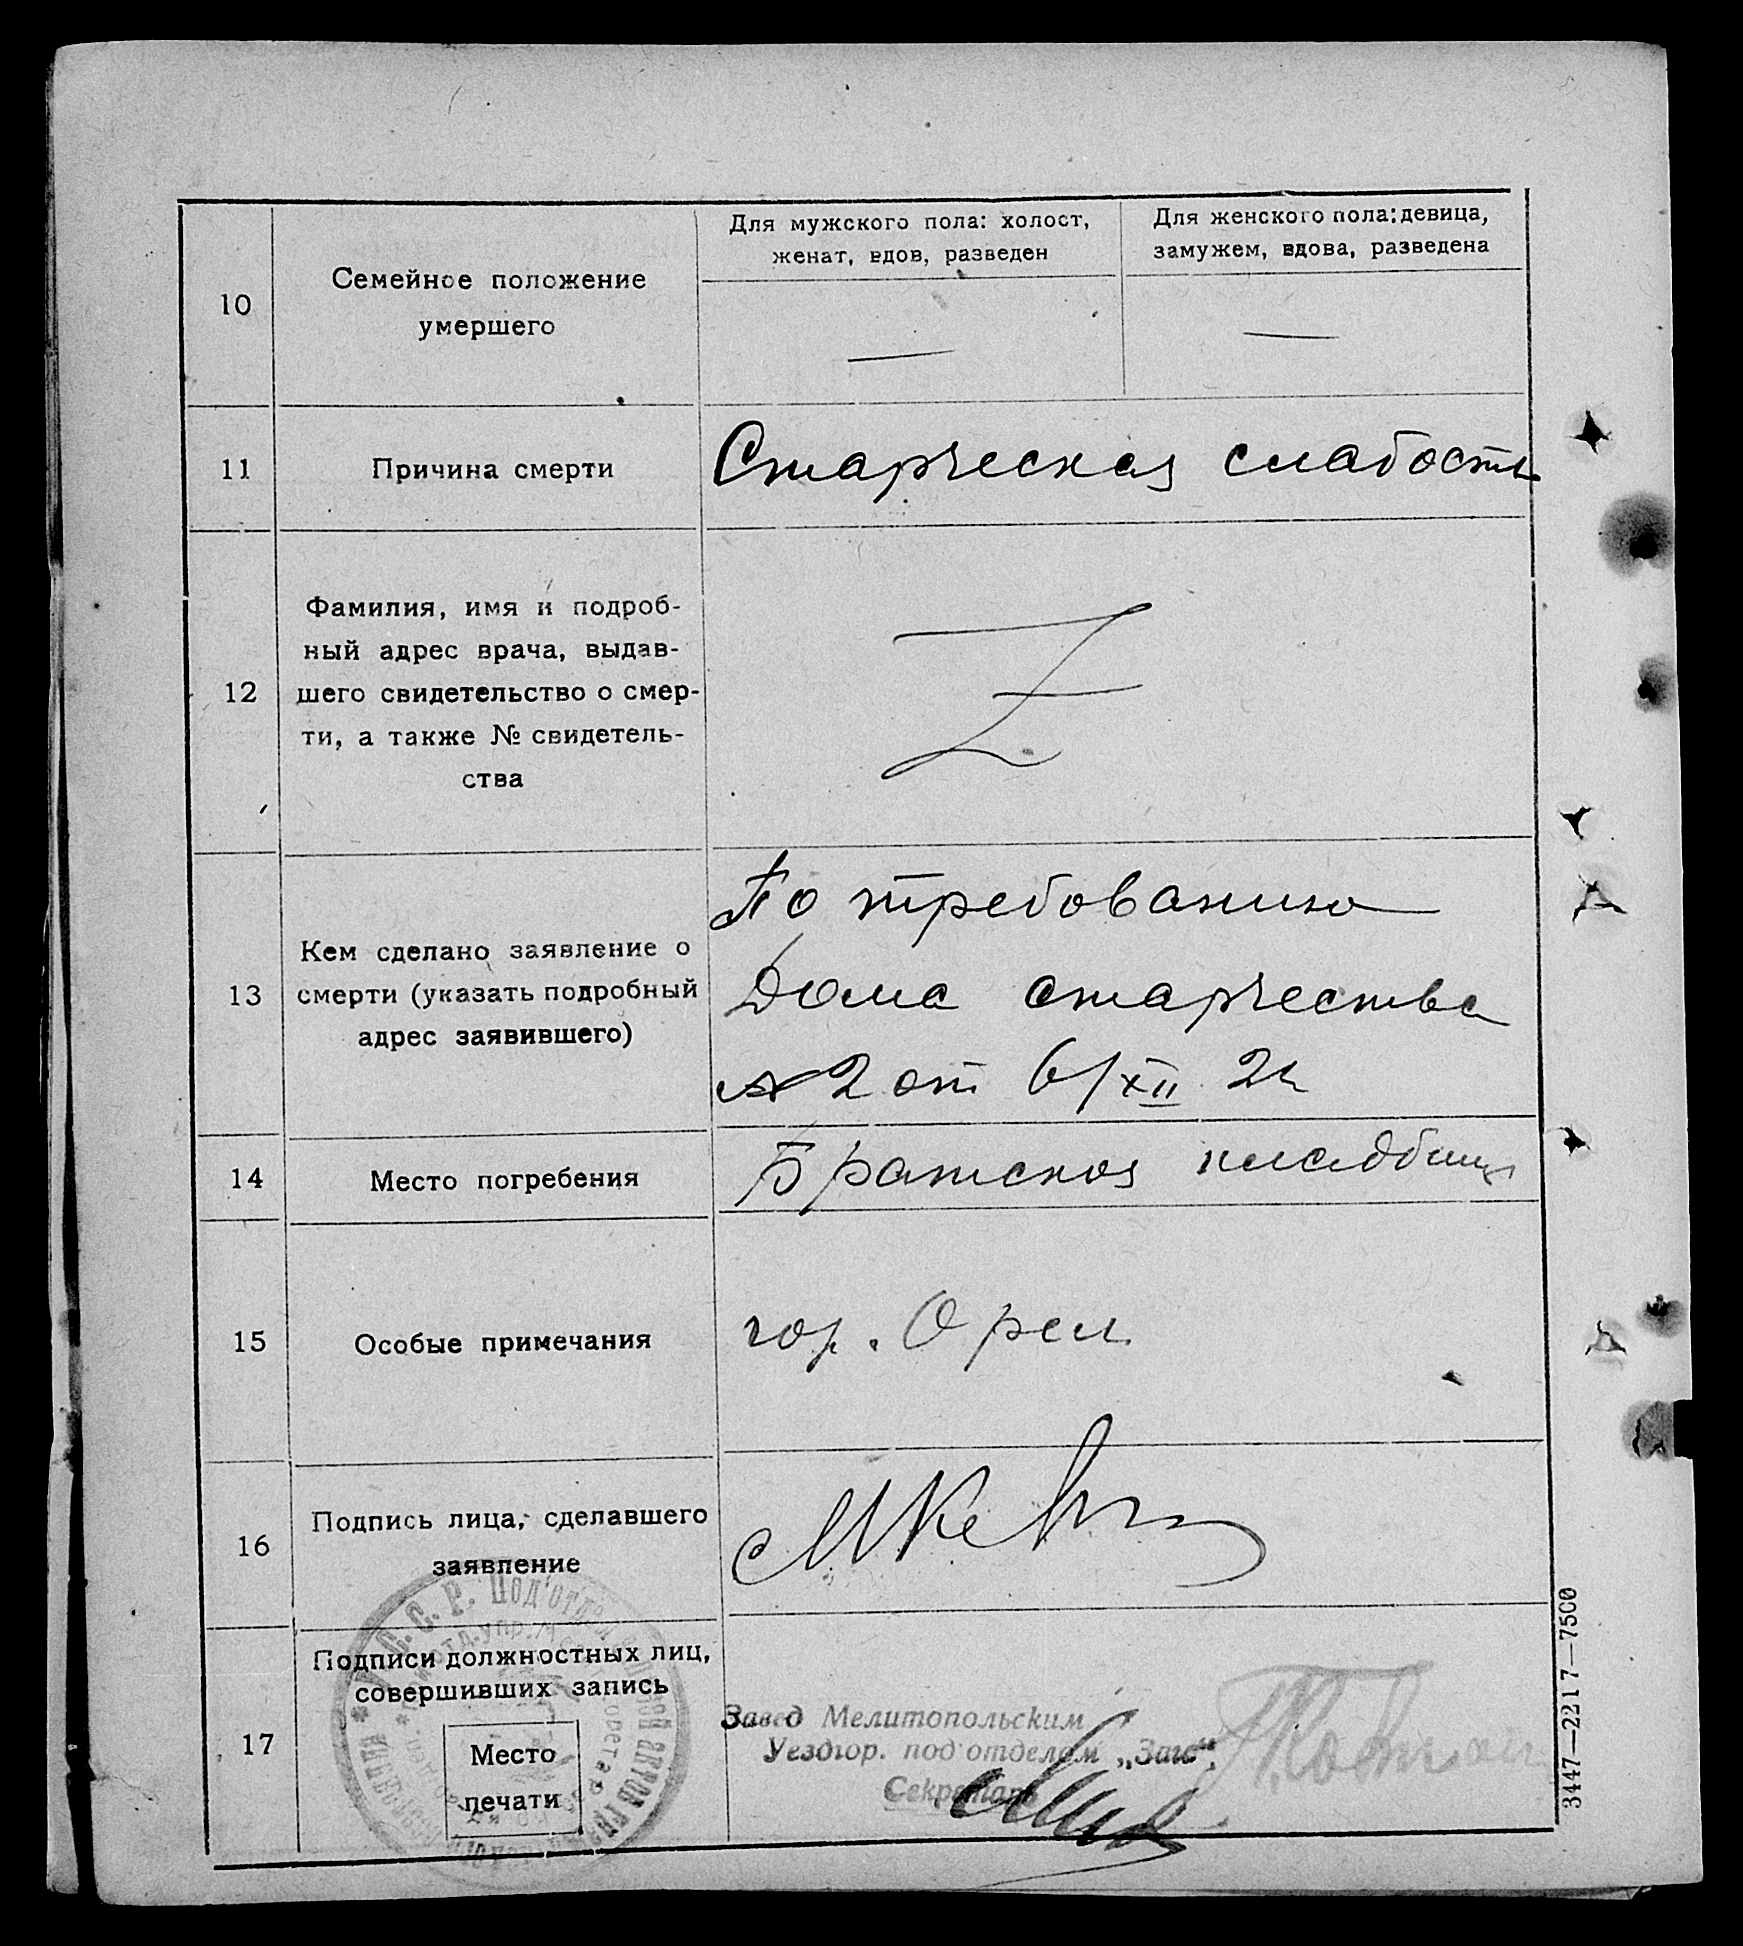 10
Семейное положение
умершего
Для мужского пола: холост,
женат, вдов, разведен
Для женского пола: девица,
замужем, вдова, разведена
—
—
11
Причина смерти
Старческая слабость
12
Фамилия, имя и подроб-
ный адрес врача, выдав-
шего свидетельство о смер-
ти, а также № свидетель-
ства
13
Кем сделано заявление о
смерти (указать подробный
адрес заявившего)
По требованию
Дома старчества
№ 2 от 6/XII 2
14
Место погребения
Братское кладбище
15
Особые примечания
гор. Орел
16
Подпись лица, сделавшего
заявление
17
Подписи должностных лиц,
совершивших запись
Место
печати
С. С. Р. Под'отдел
Завед Мелитопольским
Уездгор. под'отделом „Загс“.
Секретарь
3447—2217—7500